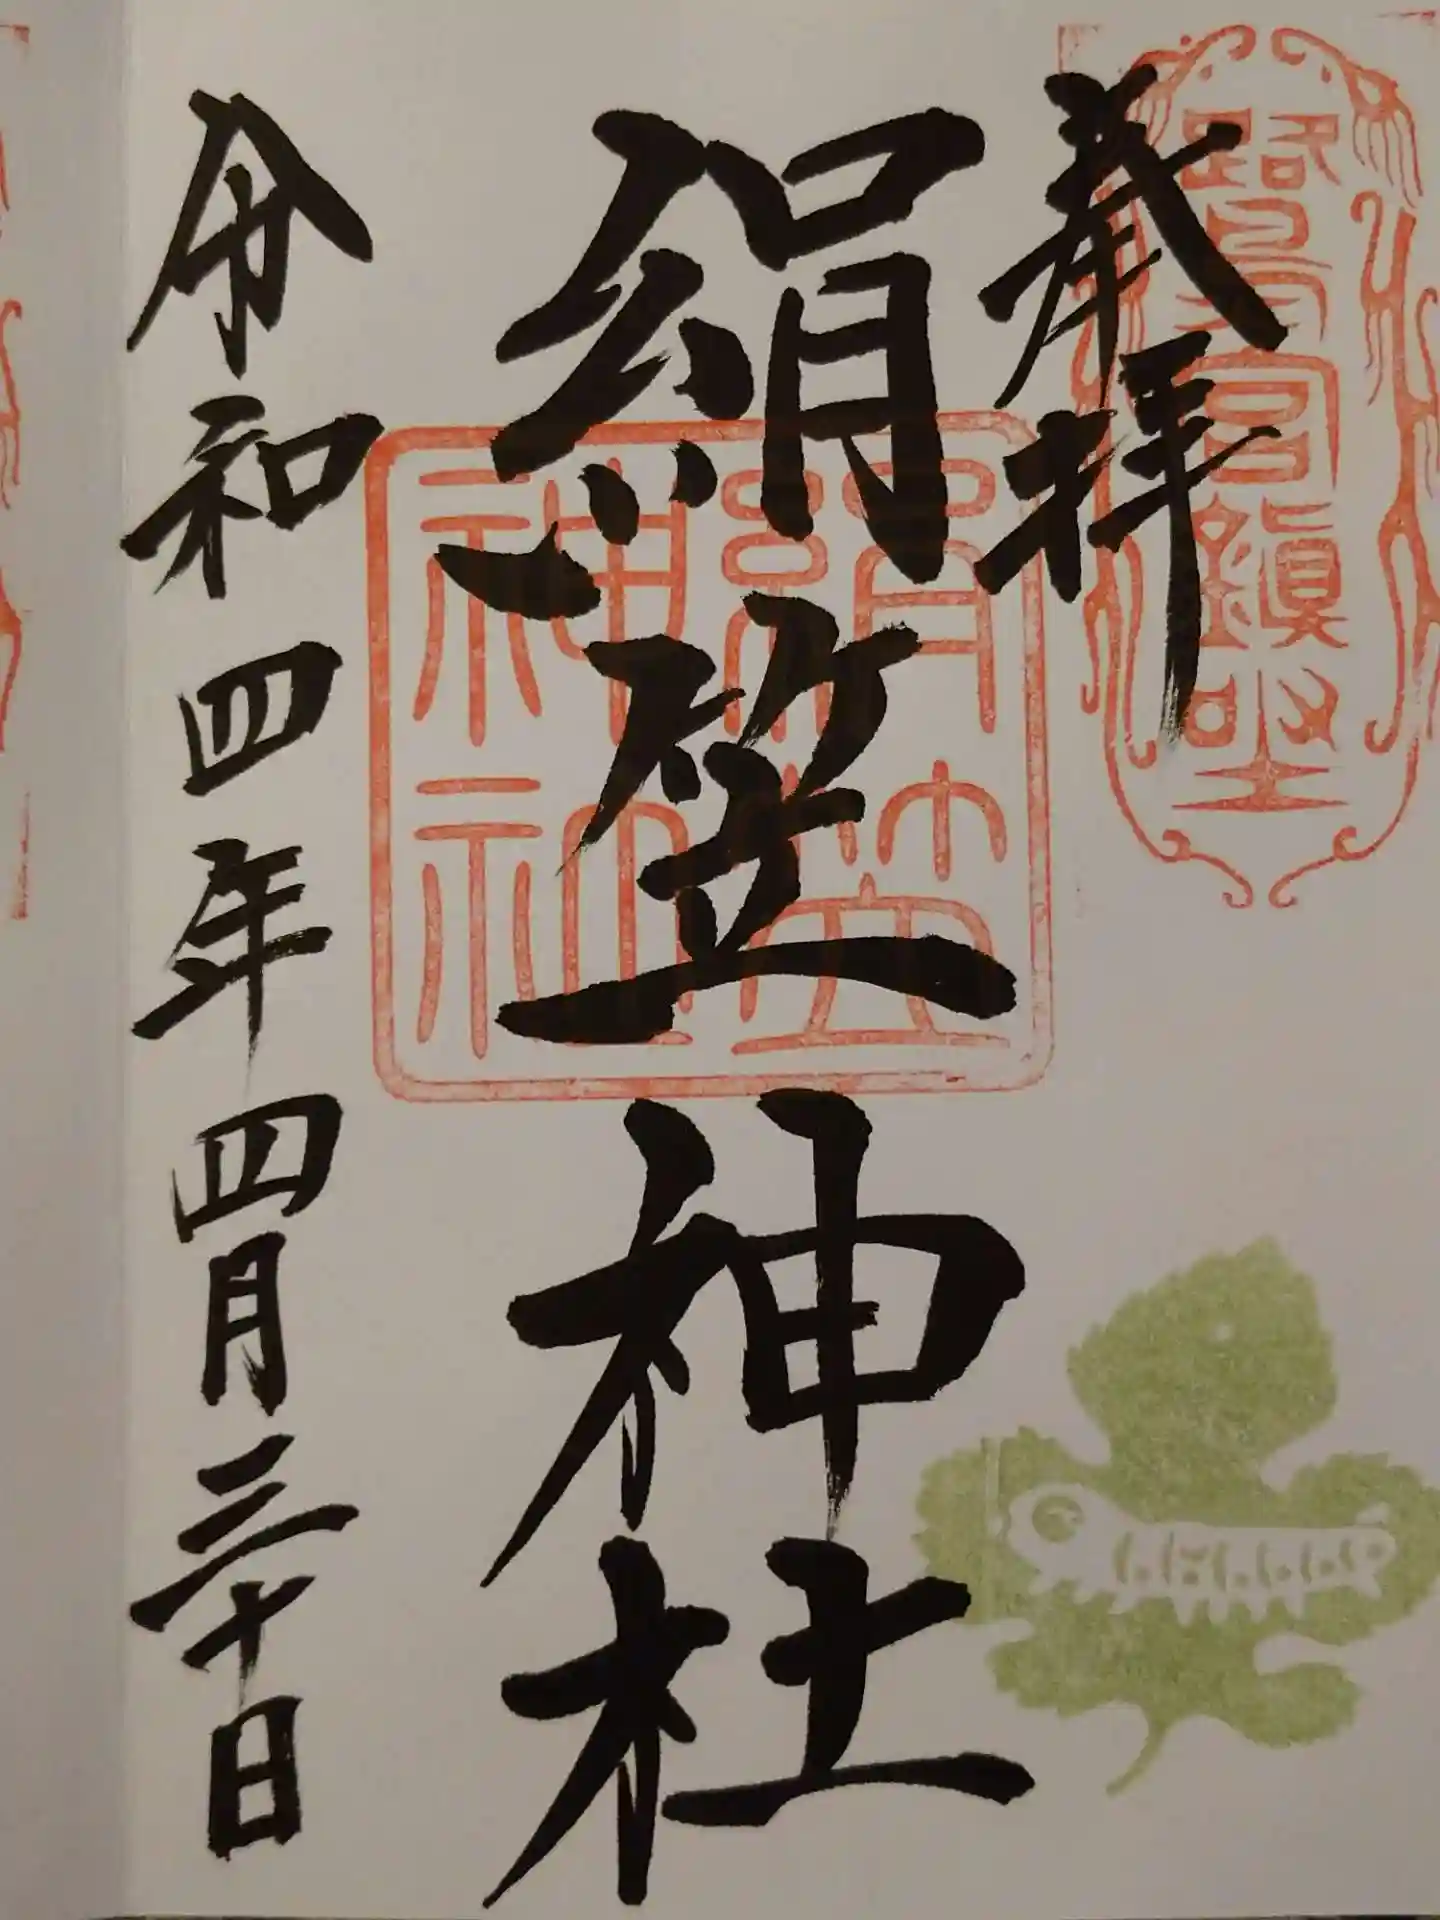 鷺宮鎭坐
奉拝
絹笠神社
絹笠
神社
令和四年四月三十日